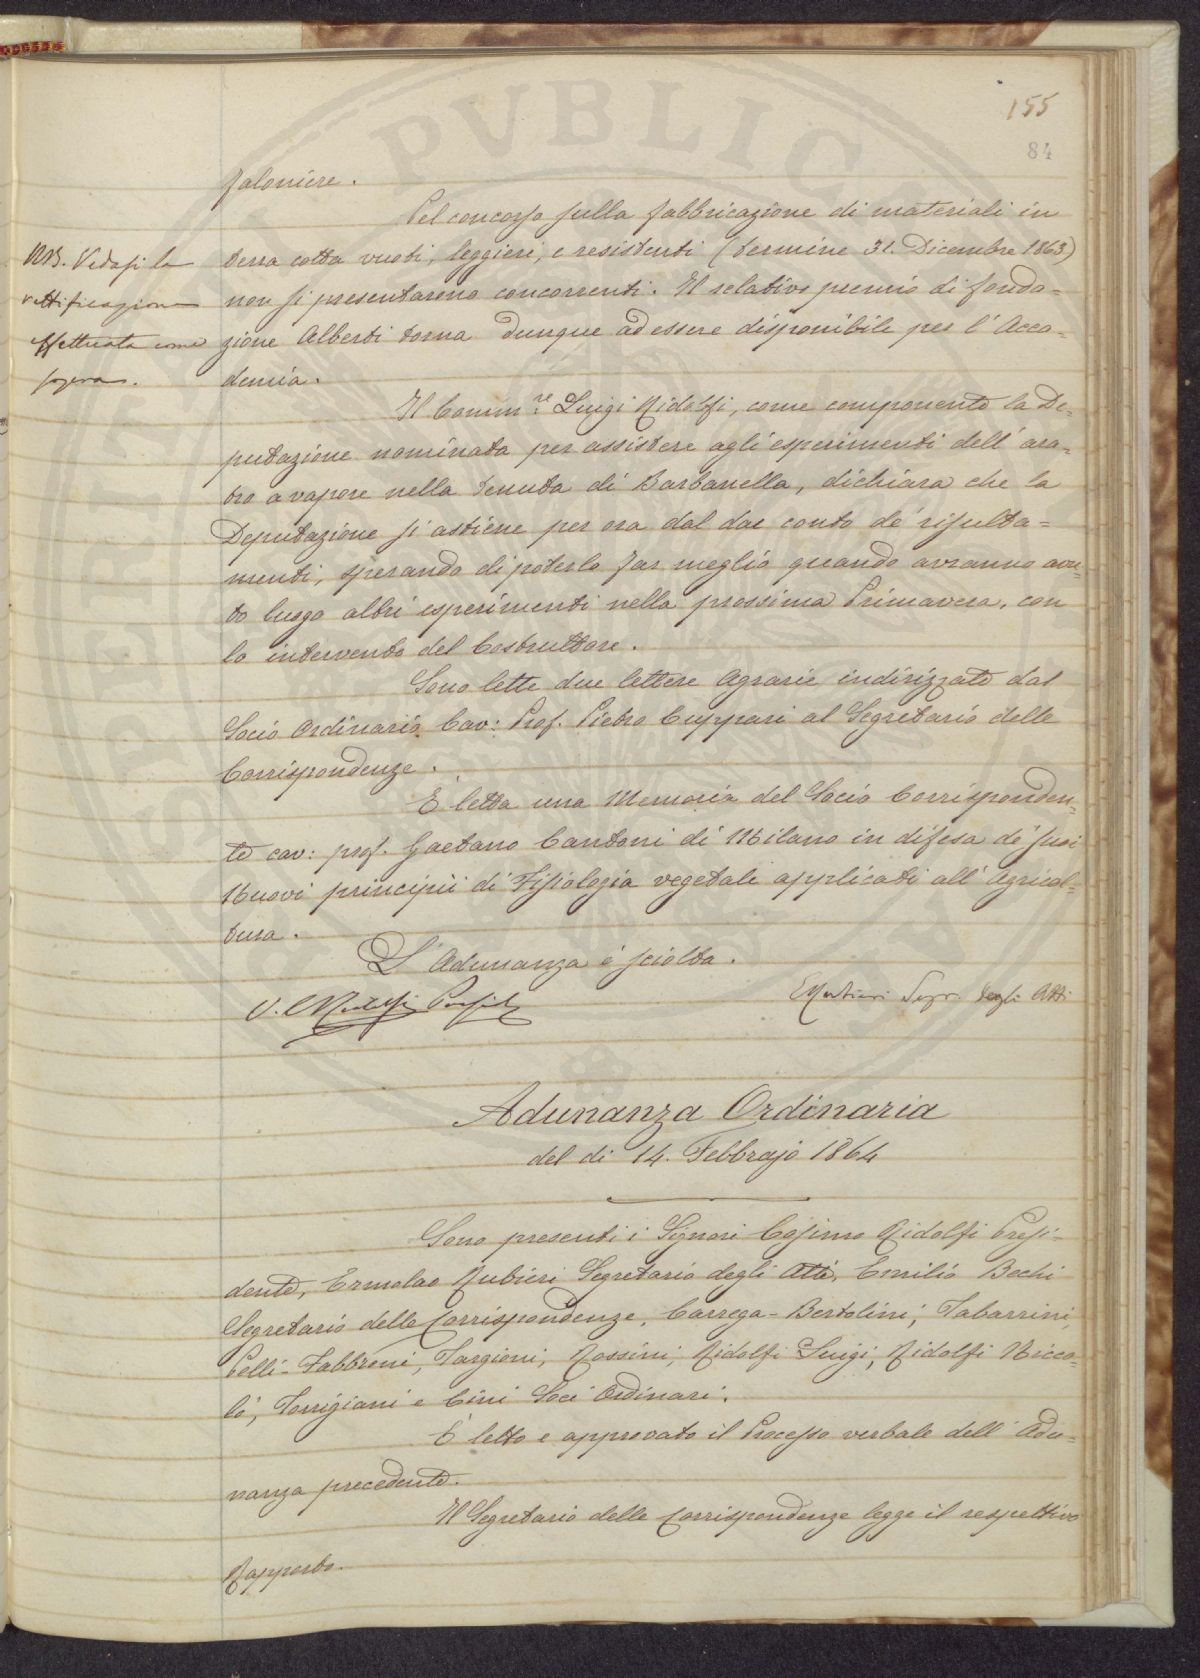 155
84
faloniere.
Pel concorso sulla fabbricazione di materiali in
terra cotta vuoti, leggieri, e resistenti (termine 31. Dicembre 1863)
non si presentarono concorrenti. Il relativo premio di fonda=
zione Alberti torna dunque ad essere disponibile per l'Acca=
demia.
NB. Vedasi la
rettificazione
effettuata come
sopra.
Il Comm.re Luigi Ridolfi, come componente la De=
putazione nominata per assistere agli esperimenti dell'ara=
tro a vapore nella tenuta di Barbanella, dichiara che la
Deputazione si astiene per ora dal dar conto de' risulta=
menti, sperando di poterlo far meglio quando avranno avu=
to luogo altri esperimenti nella prossima Primavera, con
lo intervento del Costruttore.
Sono lette due lettere Agrarie indirizzate dal
Socio Ordinario Cav: Prof. Pietro Cuppari al Segretario delle
Corrispondenze.
È letta una Memoria del Socio Corrisponden=
te cav: prof. Gaetano Cantoni di Milano in difesa de' suoi
Nuovi principii di Fisiologia vegetale applicati all'Agricol=
tura.
L'Adunanza è sciolta.
C. Ridolfi Presid.
E Rubieri Segr. degli Atti
Adunanza Ordinaria
del dì 14. Febbrajo 1864
Sono presenti i Signori Cosimo Ridolfi Presi=
dente, Ermolao Rubieri Segretario degli Atti, Emilio Bechi
Segretario delle Corrispondenze, Carrega-Bertolini, Tabarrini,
Pelli-Fabbroni, Targioni, Rossini, Ridolfi Luigi, Ridolfi Nicco=
lò, Torrigiani e Cini Soci Ordinari.
È letto e approvato il Processo verbale dell'Adu=
nanza precedente.
Il Segretario delle Corrispondenze legge il respettivo
Rapporto.